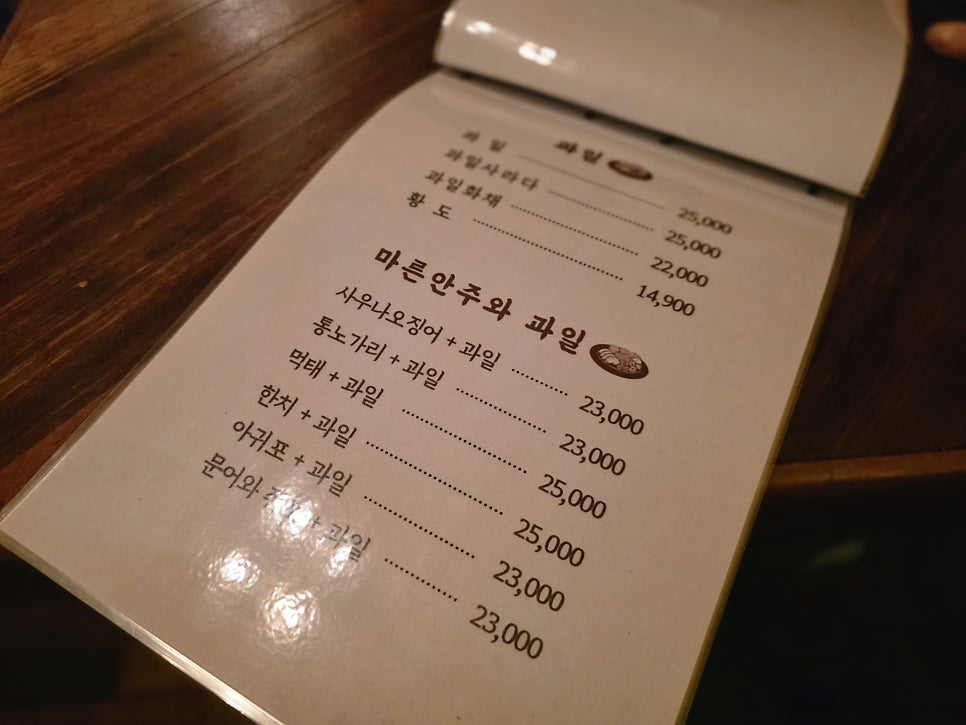 과일
과 일 25,000
과일사라다 25,000
과일화채 22,000
황 도 14,900
마른안주와 과일
사우나오징어 + 과일 23,000
통노가리 + 과일 23,000
먹태 + 과일 25,000
한치 + 과일 25,000
아귀포 + 과일 23,000
문어와 + 과일 23,000